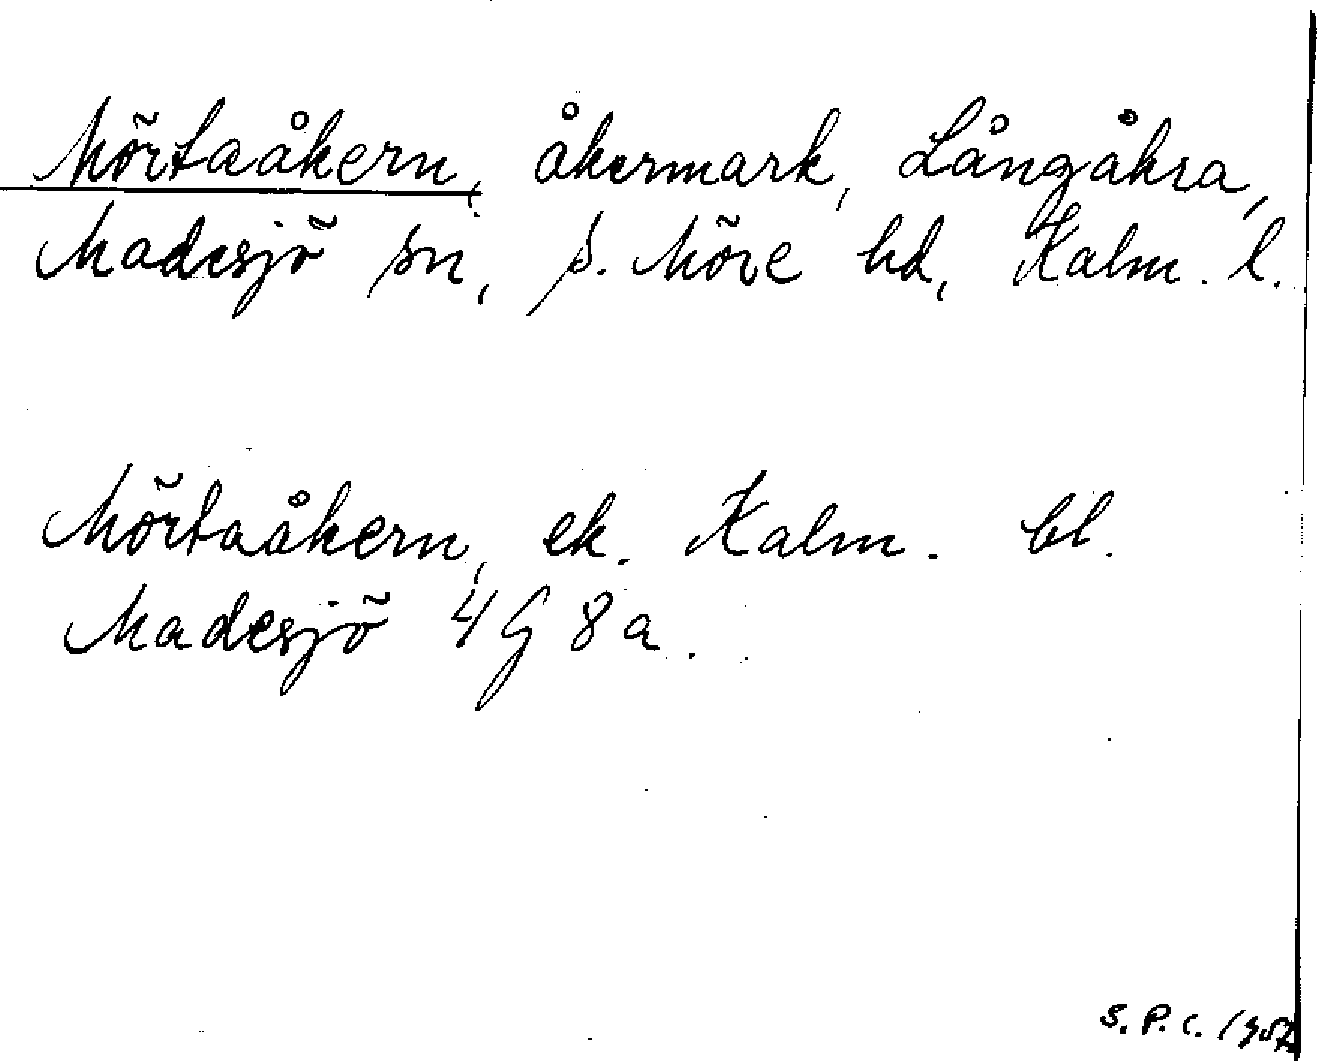 Mörtaåkern, åkermark, Långåkra,
Madesjö sn, S. Möre hd, Kalm. l.
Mörtaåkern, ek. Kalm. bl.
Madesjö 4 G 8 a.
S. P. C.